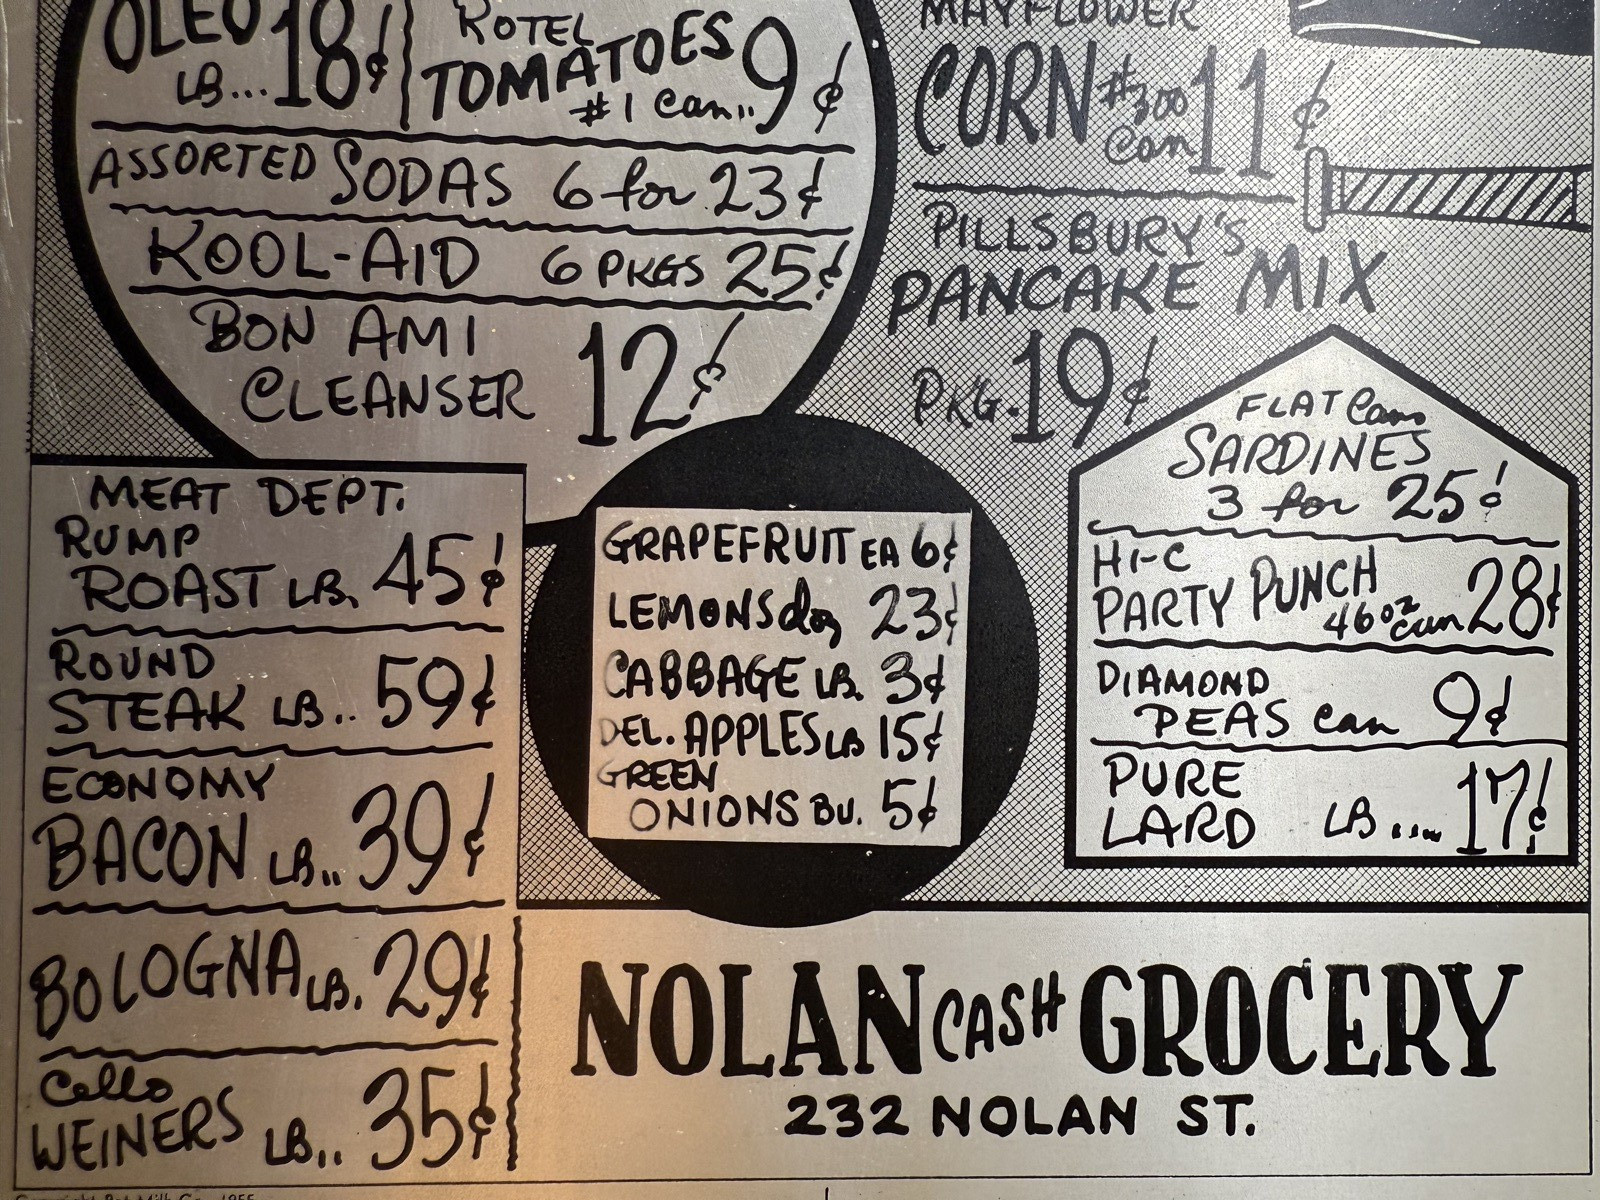 OLEO
LB... 18¢
ROTEL
TOMATOES
#1 Can.. 9¢
ASSORTED SODAS 6 for 23¢
KOOL-AID 6 PKGS 25¢
BON AMI
CLEANSER 12¢
MAYFLOWER
CORN #300 Can 11¢
PILLSBURY'S
PANCAKE MIX
PKG. 19¢
FLAT Cans
SARDINES
3 for 25¢
HI-C
PARTY PUNCH
46 oz can 28¢
DIAMOND
PEAS can 9¢
PURE
LARD LB.... 17¢
MEAT DEPT.
RUMP
ROAST LB. 45¢
ROUND
STEAK LB.. 59¢
ECONOMY
BACON LB.. 39¢
BOLOGNA LB. 29¢
Cello
WEINERS LB.. 35¢
GRAPEFRUIT EA 6¢
LEMONS doz 23¢
CABBAGE LB. 3¢
DEL. APPLES LB 15¢
GREEN
ONIONS BU. 5¢
NOLAN CASH GROCERY
232 NOLAN ST.
Copyright Pet Milk Co. 1955